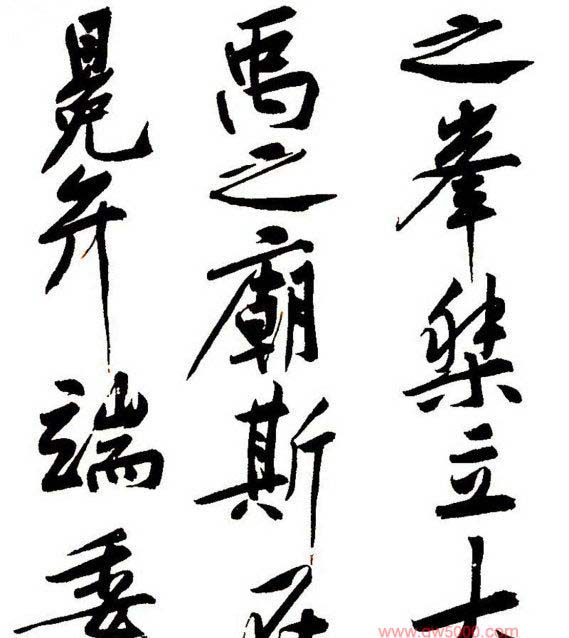 之峯桀立
禹之廟斯
冕弁端委
www.dw5000.com